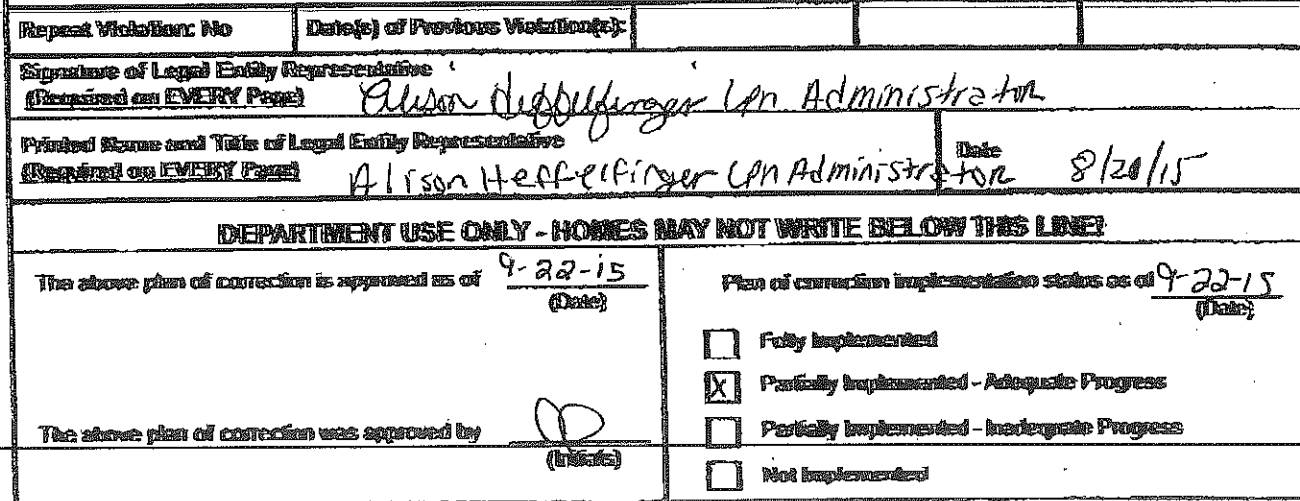 Repeat Violation: No Date(s) of Previous Violation(s):
Signature of Legal Entity Representative
(Required on EVERY Page) Alison Heffelfinger Lpn Administrator
Printed Name and Title of Legal Entity Representative
(Required on EVERY Page) Alison Heffelfinger Lpn Administrator Date 8/20/15
DEPARTMENT USE ONLY - HOMES MAY NOT WRITE BELOW THIS LINE!
The above plan of correction is approved as of 9-22-15
(Date)
Plan of correction implementation status as of 9-22-15
(Date)
Fully Implemented
X Partially Implemented - Adequate Progress
The above plan of correction was approved by
(Initials)
Partially Implemented - Inadequate Progress
Not Implemented